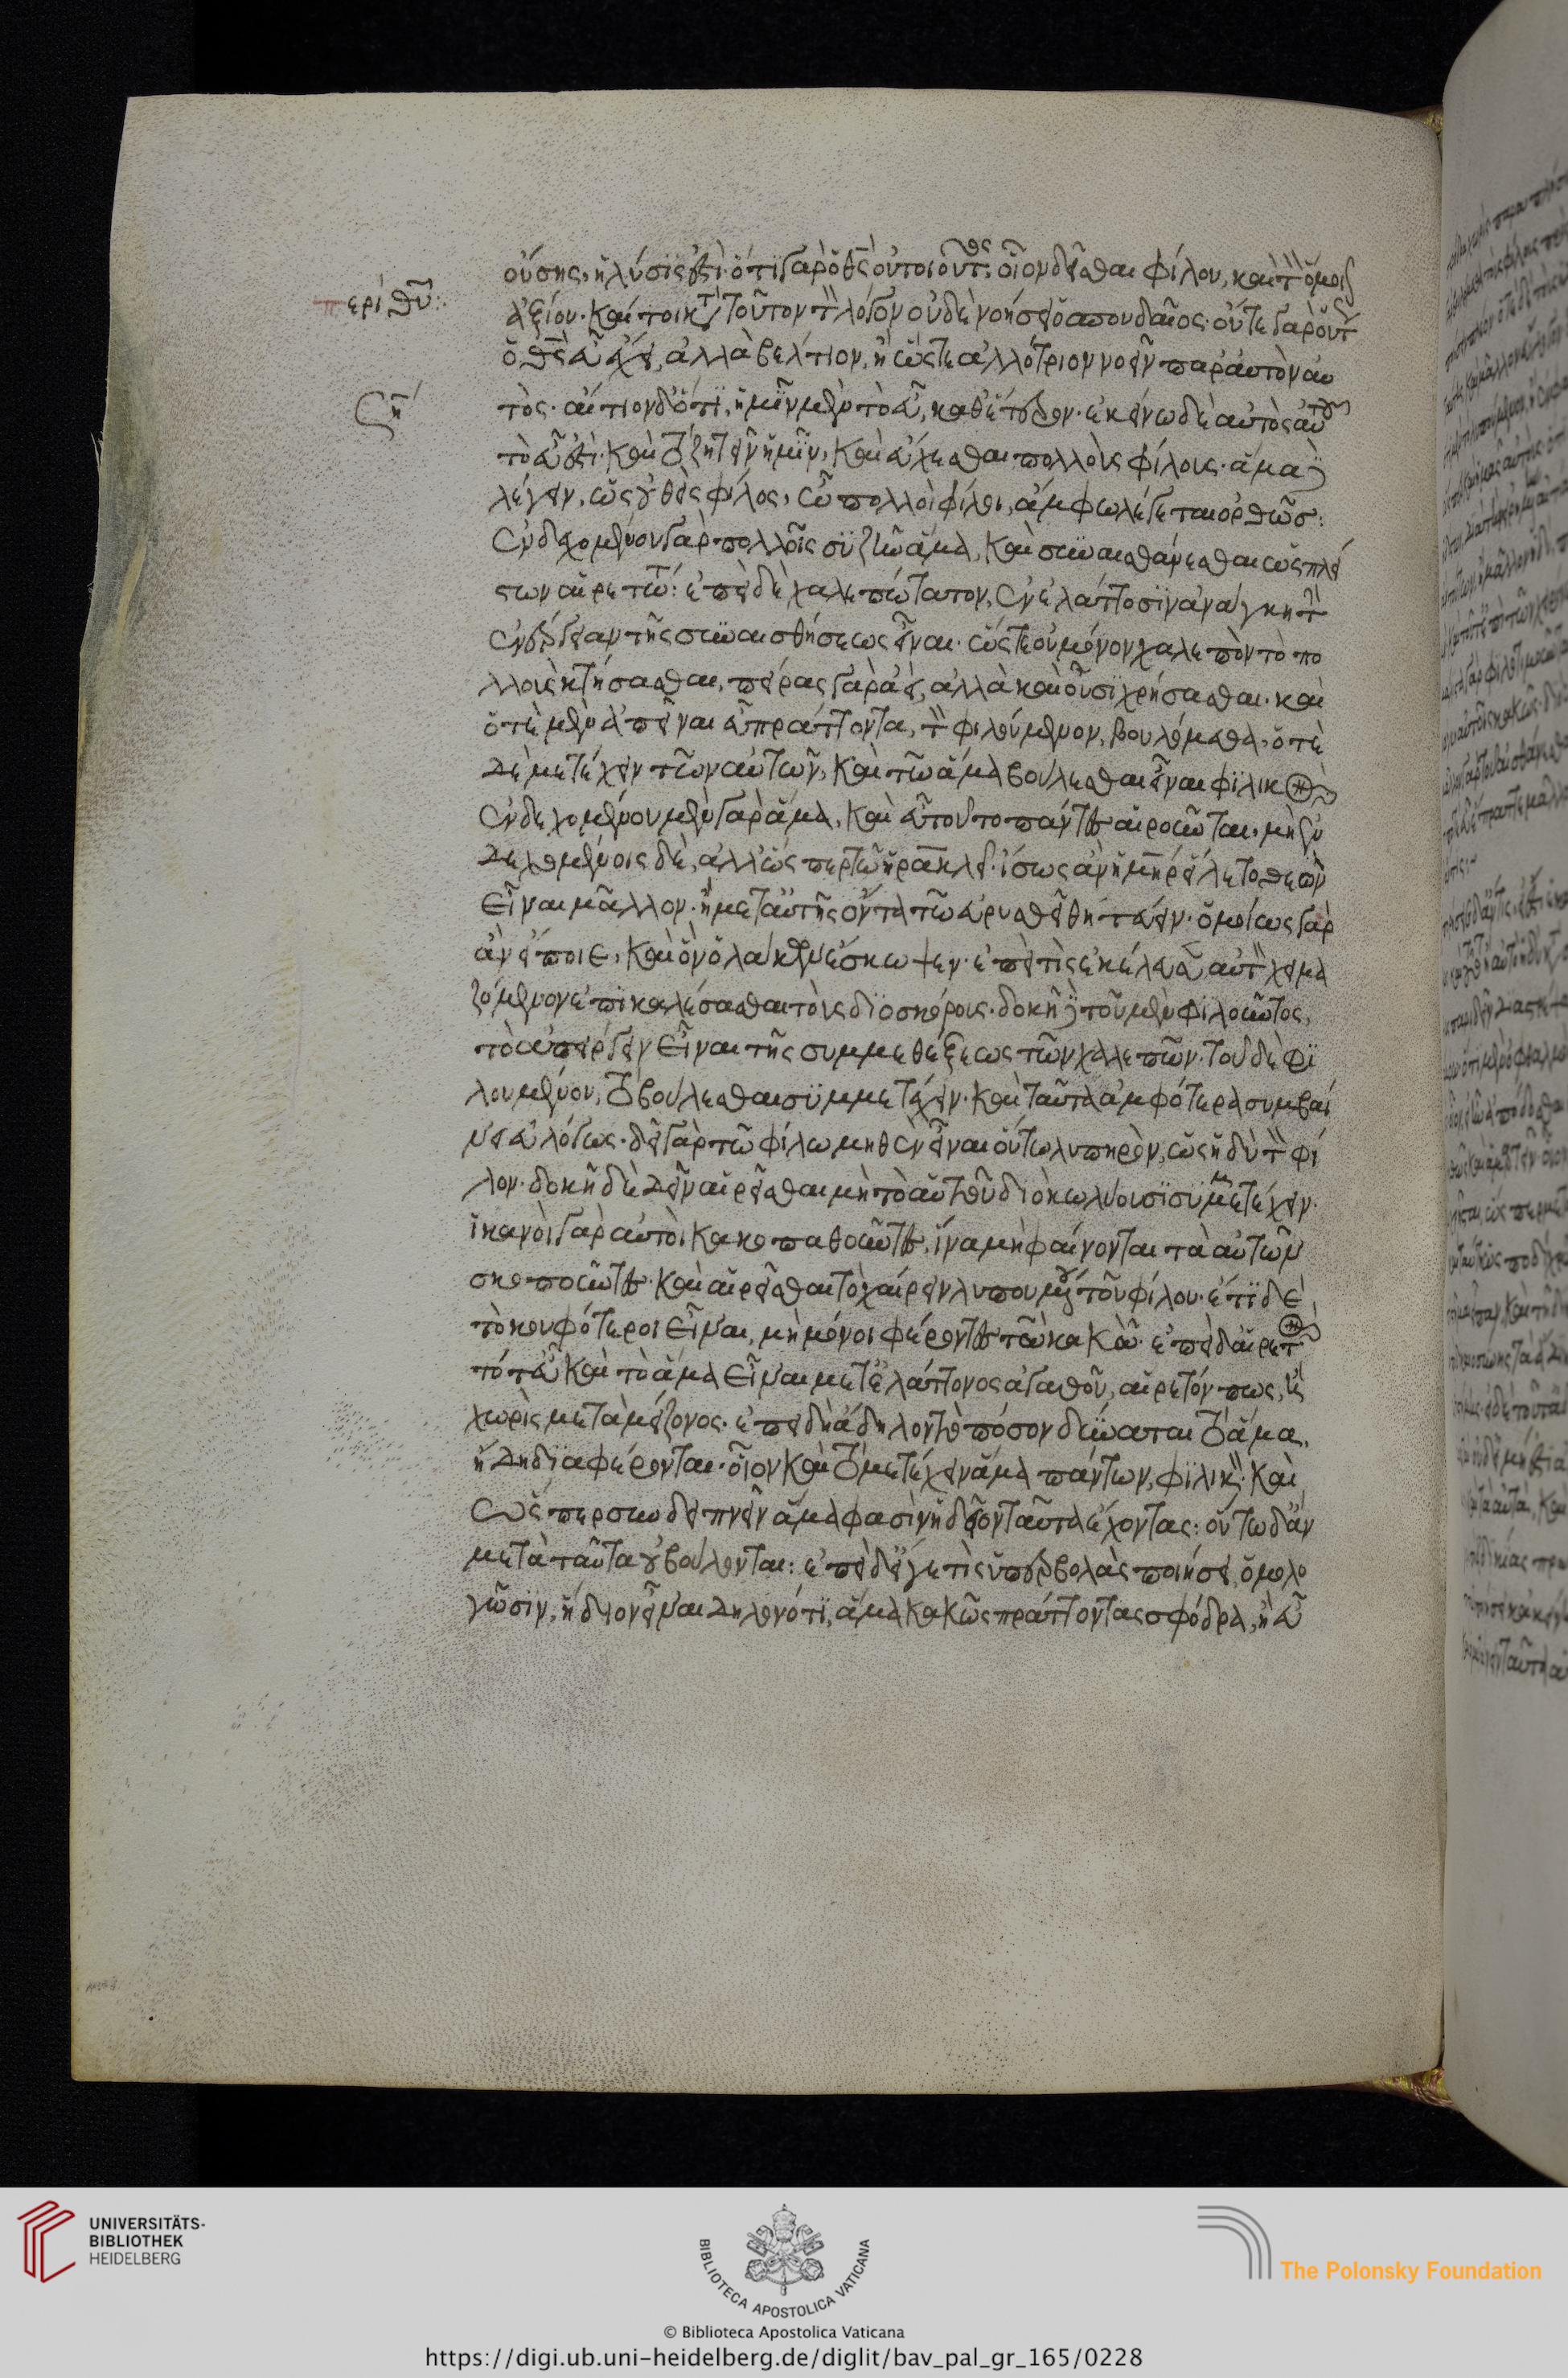 περὶ θυ:
ση
ούσης, ἡ λύσις ἐστί· ὅτι γὰρ ὁ θς οὐ τοιοῦτος, οἷον δεῖσθαι φίλου, καὶ τὸν ὅμοιον
ἀξίον. καίτοι κατὰ τοῦτον τὸν λόγον οὐδὲ νοήσει ὁ σπουδαῖος· οὔτε γὰρ οὕτως
ὁ θς εὖ ἔχει, ἀλλὰ βελτίον, ἢ ὥστε ἀλλότριον νοεῖν παρ' αὐτὸν αὐ
τός· αἴτιον δ' ὅτι, ἡμῖν μὲν τὸ εὖ, καθ' ἕτερον· ἐκείνω δὲ αὐτὸς αὐτοῦ
τὸ εὖ ἐστί· καὶ τὸ ζητεῖν ἡμῖν, καὶ εὔχεσθαι πολλοῖς φίλοις· ἅμα δὲ
λέγειν, ὡς οὐθεὶς φίλος, ὧ πολλοὶ φίλοι, ἄμφω λέγεται ὀρθῶς:
ἐνδεχομένου γὰρ πολλοῖς συζῆν ἅμα, καὶ συναισθάνεσθαι ὡς πλεί
στων αἱρετώτ: ἐπεὶ δὲ χαλεπώτατον, ἐν ἐλάττοσιν ἀνάγκη τὴν
ἐνέργειαν τῆς συναισθήσεως εἶναι· ὥστε οὐ μόνον χαλεπὸν τὸ πο
λλοὺς κτήσασθαι, πείρας γὰρ δεῖ, ἀλλὰ καὶ οὖσι χρήσασθαι· καὶ
ὁτὲ μὲν ἀπεῖναι εὖ πράττοντα, τὸν φιλούμενον, βουλόμεθα, ὁτὲ
δὲ μετέχειν τῶν αὐτῶν, καὶ τῶ ἅμα βούλεσθαι εἶναι φιλικὸν
ἐνδεχομένου μὲν γὰρ ἅμα, καὶ εὖ τοῦτο πάντες αἱροῦνται, μὴ ἐν
δεχομένοις δὲ, ἀλλ' ὥσπερ τῶ ἡρακλεῖ· ἴσως ἂν ἡ μηρ εἵλετο θεὸν
εἶναι μᾶλλον· ἢ μετ' αὐτῆς ὄντα τῶ εὐρυσθεῖ θητεύειν· ὁμοίως γὰρ
ἂν εἴποιε, καὶ ὃν ὁ λάκων ἔσκωψεν· ἐπεί τις ἐκέλευσεν αὐτὸν χειμα
ζόμενον ἐπικαλέσασθαι τοὺς διοσκόρους· δοκεῖ δὲ τοῦ μὲν φιλοῦντος,
τὸ ἀπείργειν εἶναι τῆς συμμεθέξεως τῶν χαλεπῶν· τοῦ δὲ φι
λουμένου, τὸ βούλεσθαι συμμετέχειν· καὶ ταῦτα ἀμφότερα συμβαί
νει εὐλόγως· δεῖ γὰρ τῶ φίλω μηθὲν εἶναι οὕτω λυπηρὸν, ὡς ἡδὺ τὸν φί
λον· δοκεῖ δὲ δεῖν αἱρεῖσθαι μὴ τὸ αὐτοῦ διὸ κωλύουσι συμμετέχειν·
ἱκανοὶ γὰρ αὐτοὶ κακοπαθοῦντες, ἵνα μὴ φαίνονται τὰ αὐτῶν
σκοποῦντες· καὶ αἱρεῖσθαι τὸ χαίρειν λυπουμένου τοῦ φίλου· ἔτι δὲ
τὸ κουφότεροι εἶναι, μὴ μόνοι φέροντες τῶν κακῶν· ἐπεὶ δ' αἱρετὸν
τό τ' εὖ καὶ τὸ ἅμα εἶναι μετ' ἐλάττονος ἀγαθοῦ, αἱρετόν πως, ἢ
χωρὶς μετὰ μείζονος· ἐπεὶ δὴ ἄδηλον τὸ πόσον δύναται τὸ ἅμα,
ἤδη διαφέρονται· οἷον καὶ τὸ μετέχειν ἅμα πάντων, φιλικόν· καὶ
ὥσπερ συνδειπνεῖν ἅμα φασὶν ἥδειον ταῦτα ἔχοντας: οὕτω δ' ἂν
μετὰ ταῦτα οὐ βούλονται: ἐπεὶ δ' εἴγέ τις ὑπερβολὰς ποιήσει, ὁμολο
γῶσιν, ἥδειον εἶναι δηλονότι, ἅμα κακῶς πράττοντας σφόδρα, ἢ εὖ
UNIVERSITÄTS-
BIBLIOTHEK
HEIDELBERG
BIBLIOTECA APOSTOLICA VATICANA
© Biblioteca Apostolica Vaticana
The Polonsky Foundation
https://digi.ub.uni-heidelberg.de/diglit/bav_pal_gr_165/0228